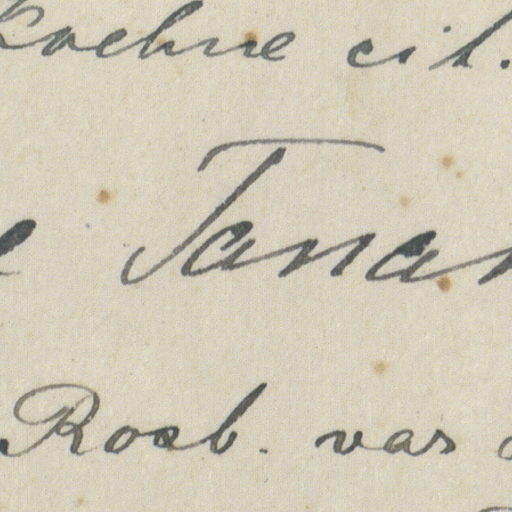 Koehne cit.
Tanan
Roxb. var